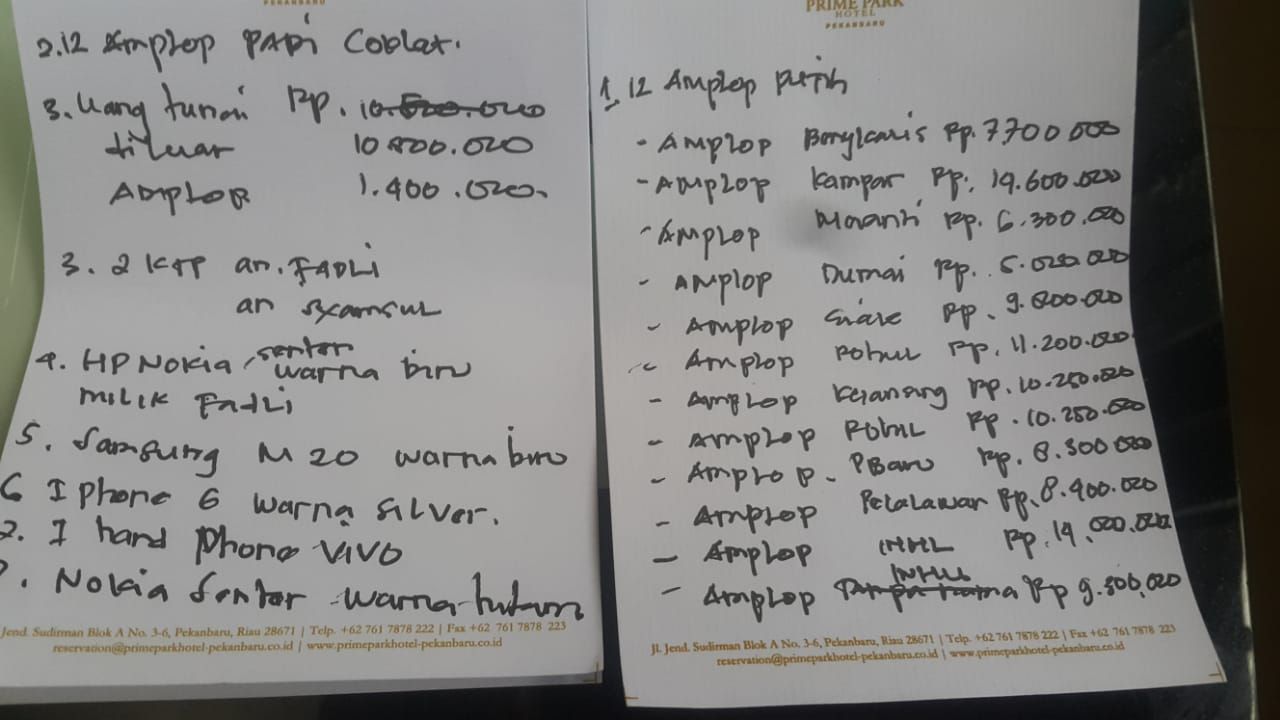 PEKANBARU
2.12 Amplop PADI Coblat.
3. Uang tunai Rp. 10.500.000
diluar 10.800.000
Amplop 1.400.000.
3. 2 KTP an. FADLI
an Syamsul
4. HP Nokia senter warna biru
milik Fadli
5. Samsung M20 warna biru
6 I phone 6 warna silver.
7. I hand phone VIVO
Nokia senter warna hitam
Jend. Sudirman Blok A No. 3-6, Pekanbaru, Riau 28671 | Telp. +62 761 7878 222 | Fax +62 761 7878 223
reservation@primeparkhotel-pekanbaru.co.id | www.primeparkhotel-pekanbaru.co.id
PRIME PARK
HOTEL
PEKANBARU
1. 12 Amplop putih
- Amplop Bengkalis Rp. 7.700 000
- Amplop Kampar Rp. 14.600.000
- Amplop Meranti Rp. 6.300.000
- Amplop Dumai Rp. 5.000 000
- Amplop Siak Rp. 9.800.000
- Amplop Rohul Rp. 11.200.000
- Amplop Rp. 10.250.000
- Amplop Rohul Rp. 10.250.000
- Amplop - PBaru Rp. 8.300 000
- Amplop Pelalawan Rp. 8.400.000
- Amplop INHL Rp. 14.000.000
- Amplop Tanpa nama INHU Rp 9.300,000
Jl. Jend. Sudirman Blok A No. 3-6, Pekanbaru, Riau 28671 | Telp. +62 761 7878 222 | Fax +62 761 7878 223
reservation@primeparkhotel-pekanbaru.co.id | www.primeparkhotel-pekanbaru.co.id